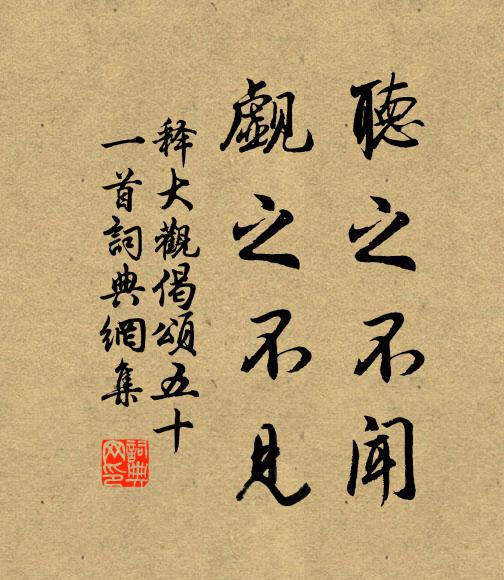 聽之不聞
覷之不見
释大觀偈頌五十
一首詞典網集
詞典
网印